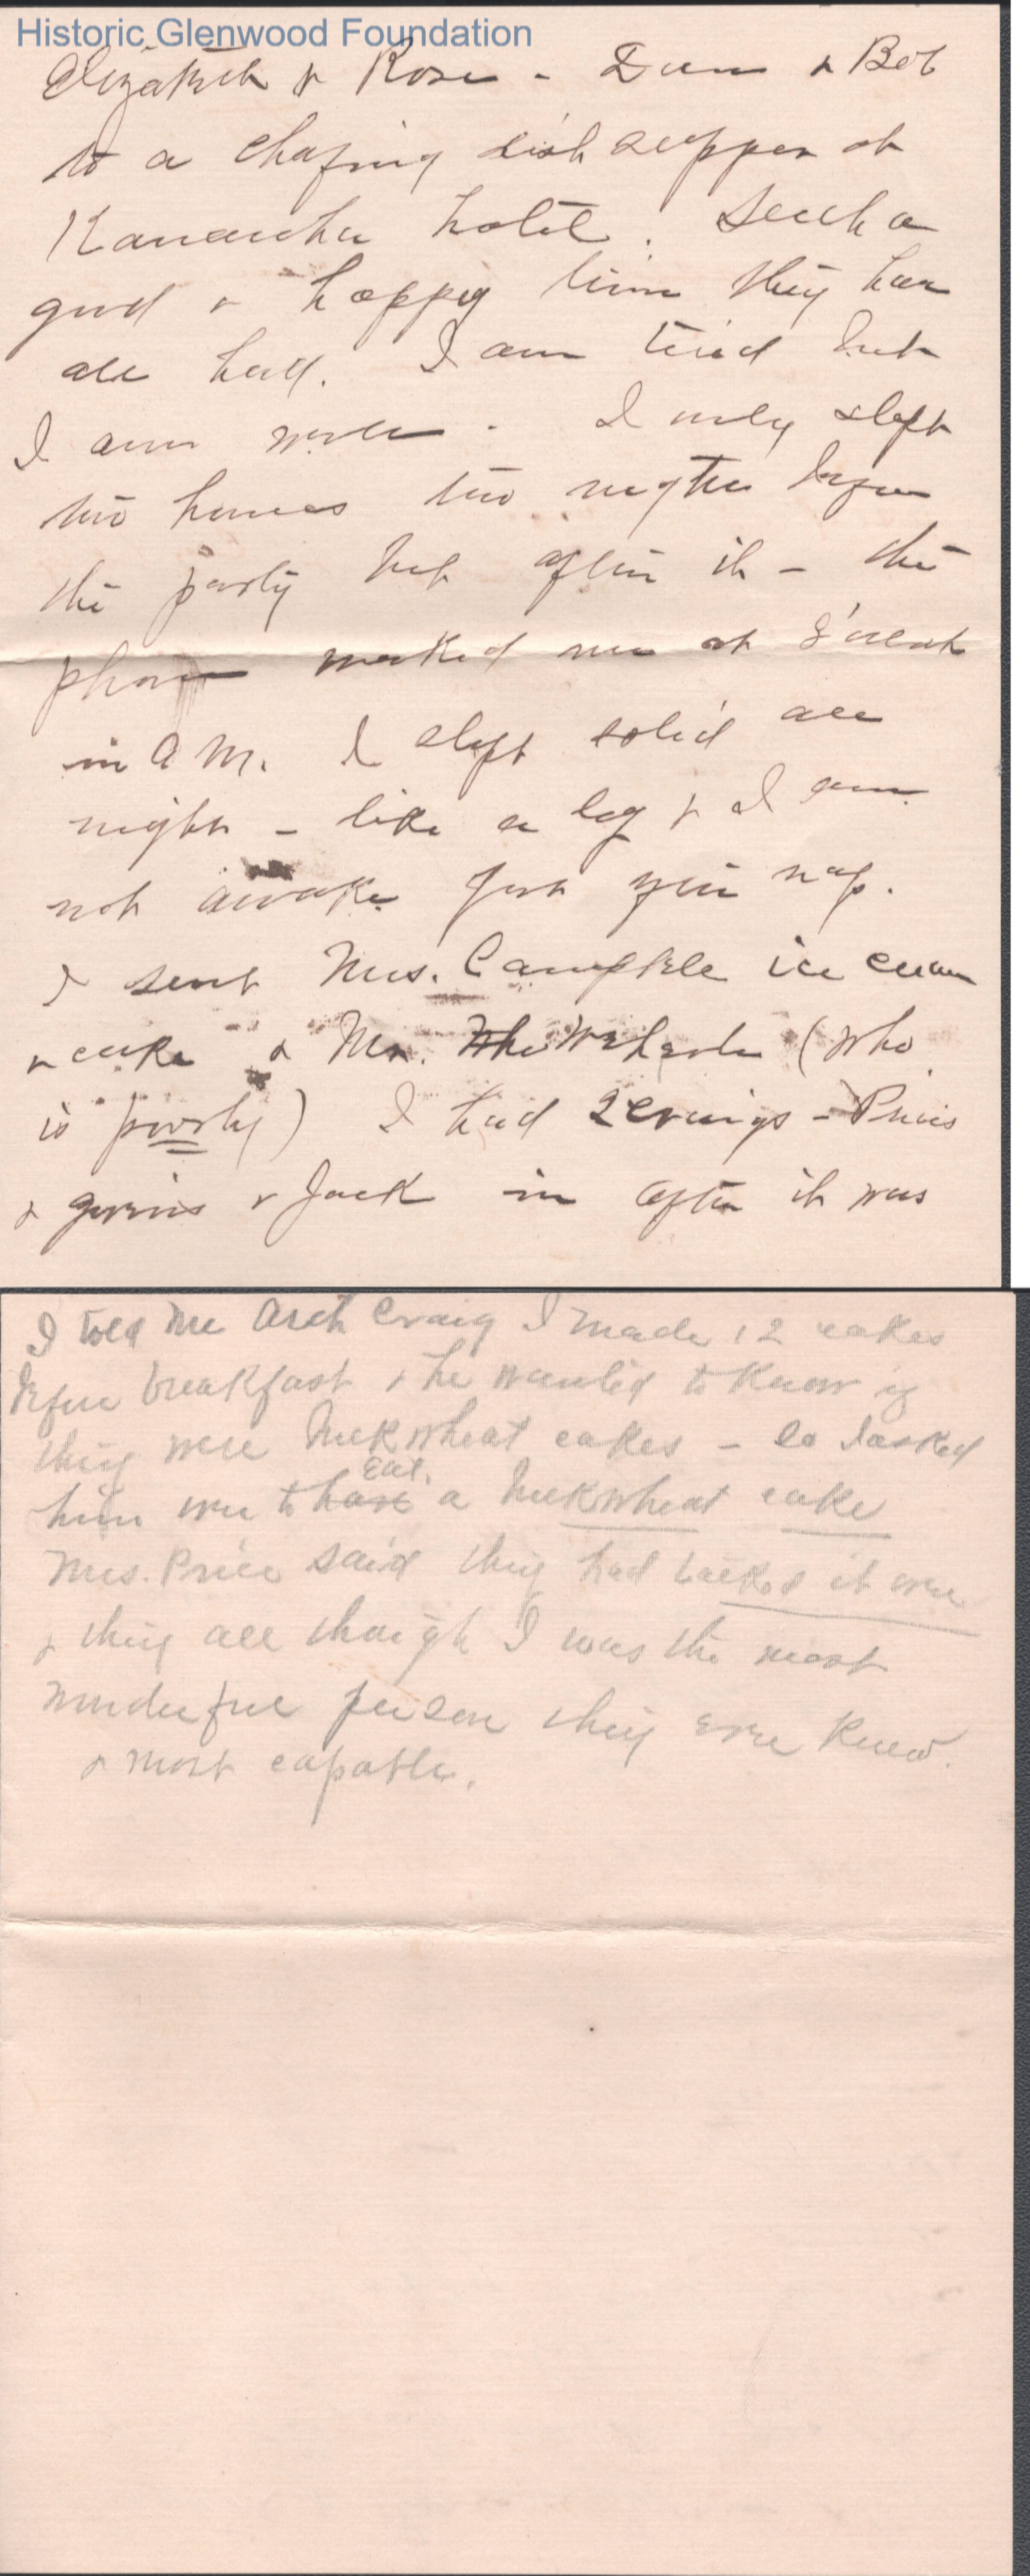 Historic Glenwood Foundation
Elizabeth & Rose - Dunn & Bob
to a chafing dish supper at
Kanawha hotel. Such a
good & happy time they have
all had. I am tired but
I am well. I only slept
two hours two nights before
the party but after it - the
phone waked me at 8 o'clock
in A M. I slept solid all
night - like a log & I am
not awake just yet
I sent Mrs. Campbell ice cream
& cake & Mr. (who
is poorly) I had 2 Craigs - Prices
& & Jack in after it was
I told Mr Arch Craig I made 12 cakes
before breakfast & he wanted to know if
they were buckwheat cakes - so I asked
him over to have eat. a buckwheat cake
Mrs. Price said they had talked it over
& they all thought I was the most
wonderful person they ever knew.
& most capable.